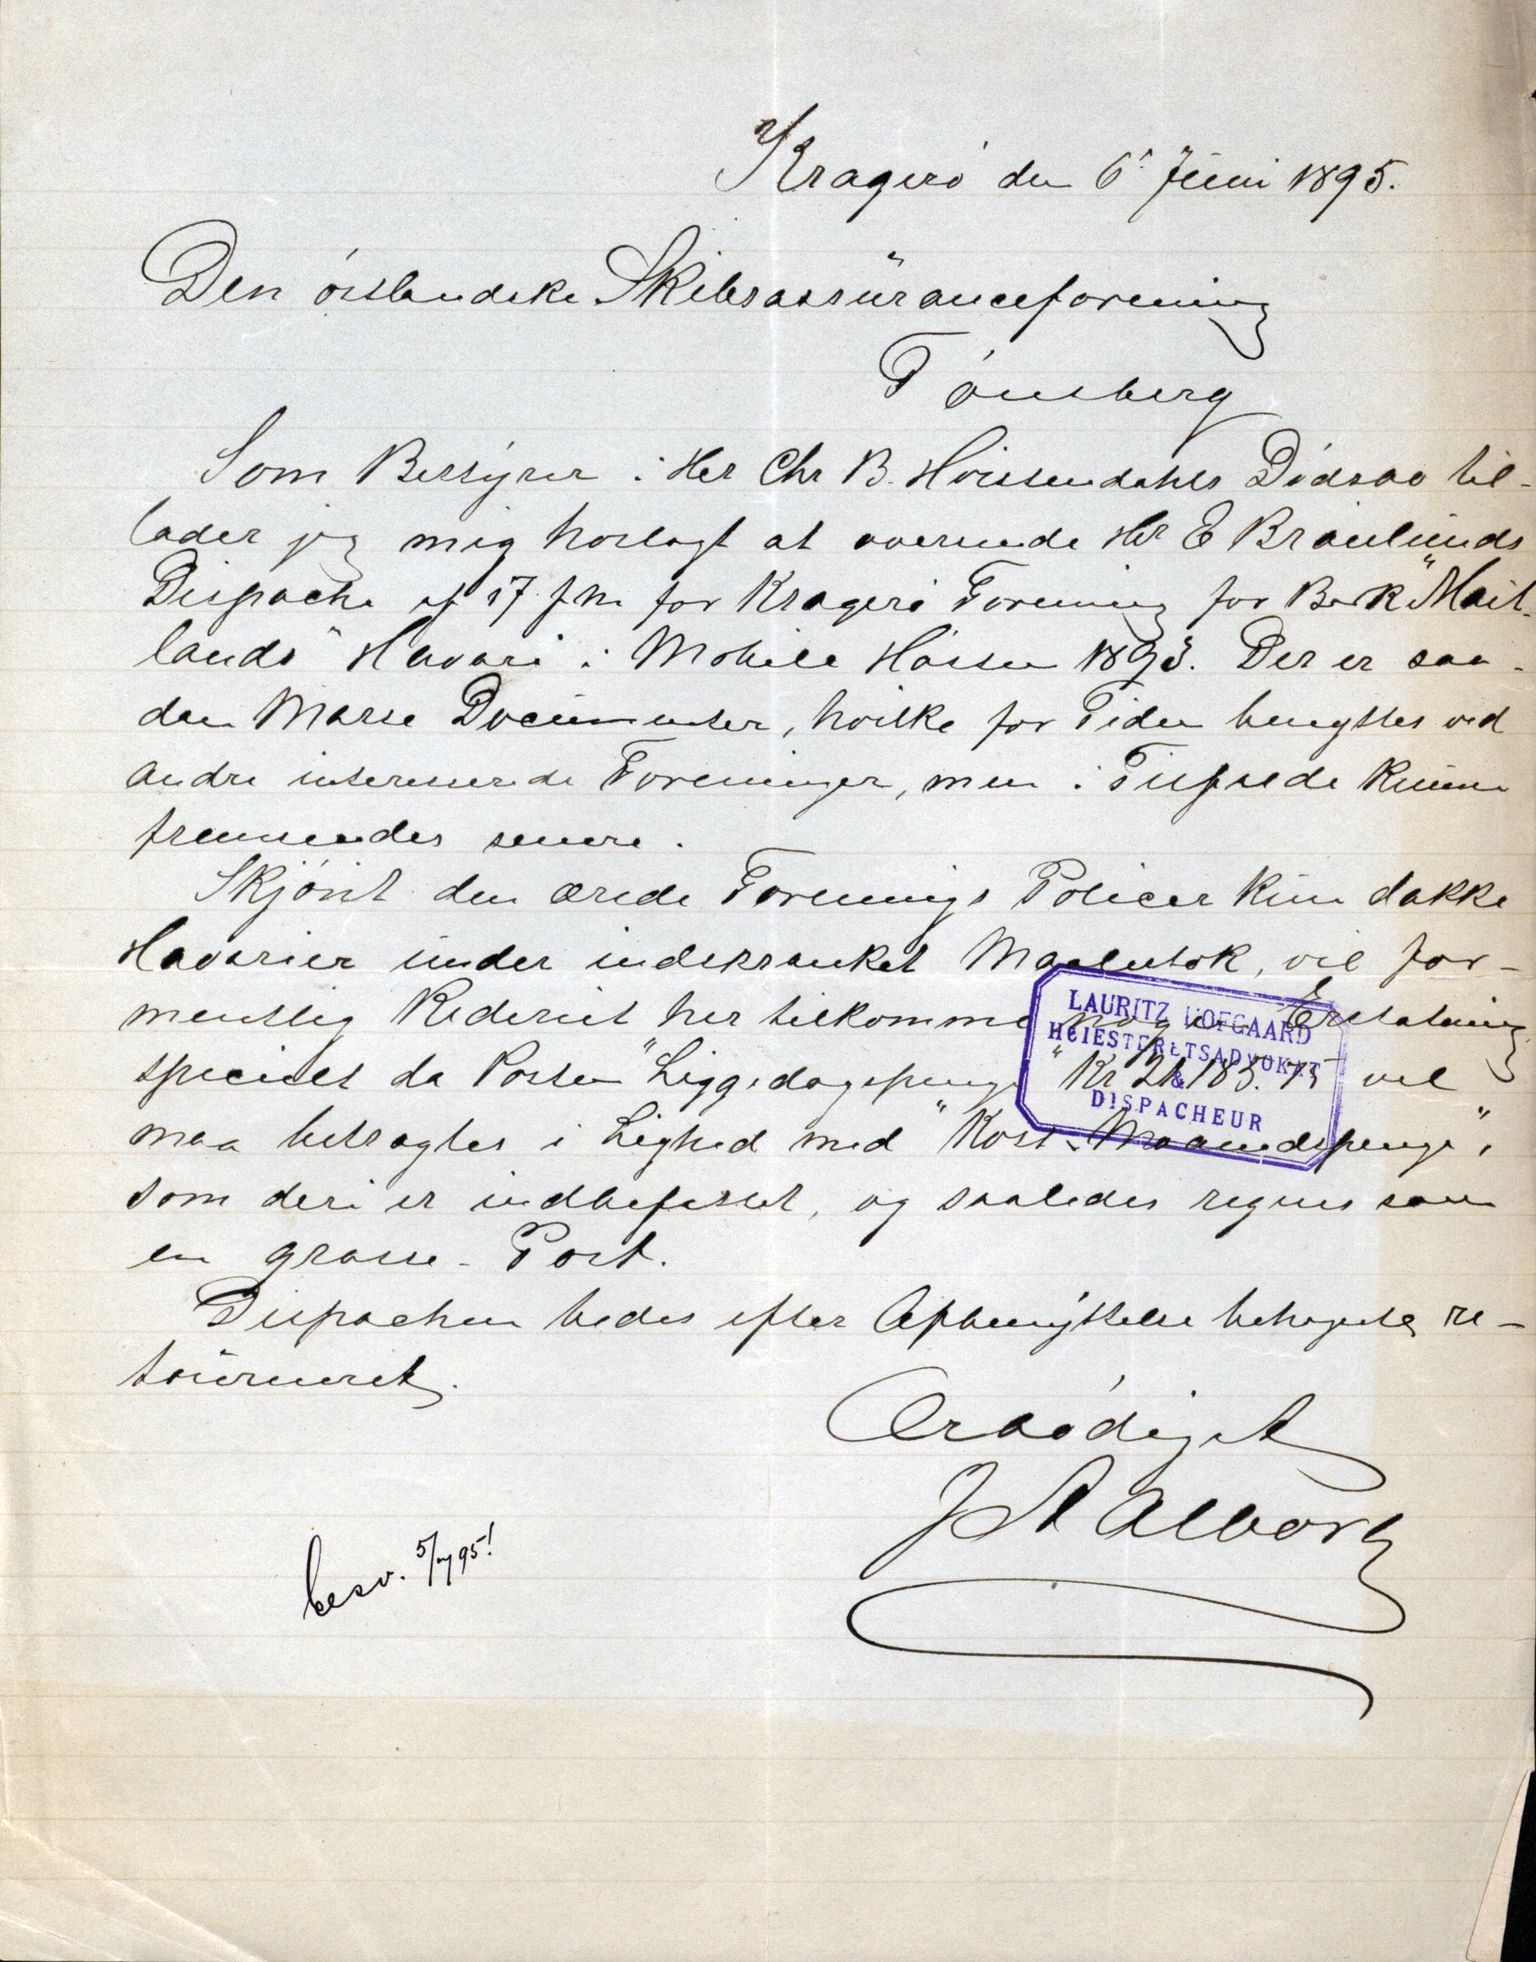 Kragerö den 6' Juni 1895.
Den östlandske Skibsassuranceforening
Tönsberg
Som Bestyrer i Her Chr B. Hvissendahls Dödsbo til-
lader jeg mig hoslagt at oversende Hr E Braulunds
Dispache af 17 f.M. for Kragerö Forening for Bark "Mait-
lands" Havari i Mobile Hösten 1893. Der er saa-
dan Masse Documenter, hvilke for Tiden benyttes ved
andre interesserede Foreninger, men i Tilfælde kunne
fremsendes senere.
Skjönt den ærede Forenings Policer kun dække
Havarier under indskrænket Maalestok, vil for-
mentlig Rederiet her tilkomme nogen Erstatning
specielt da Posten "Liggedagspenge" Kr 21.183.75 vel
maa betragtes i Lighed med "Kost & Maanedspenge",
som deri er indbefattet, og saaledes regnes som
en grosse-Post.
Dispachen bedes efter Afbenyttelse behageligt re-
tourneret.
Ærbödigst
J A Alborg
besv. 5/7 95!
LAURITZ HOFGAARD
HØIESTERETSADVOKAT
&
DISPACHEUR